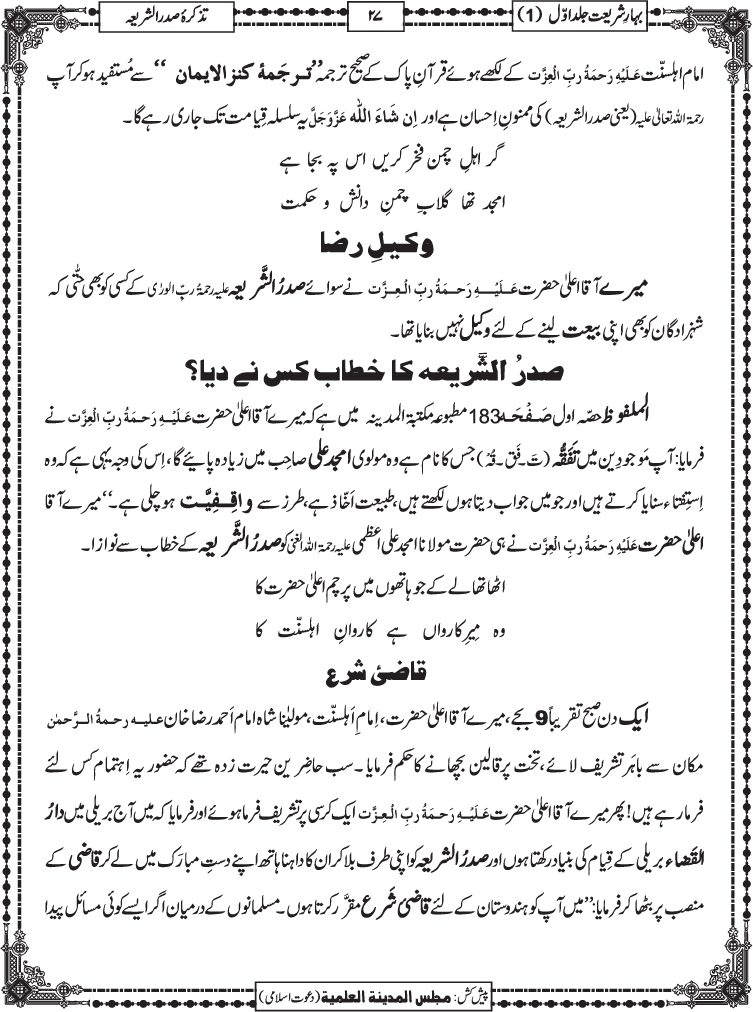 بہارِ شریعت جلد اوّل (1)
۲۷
تذکرۂ صدر الشریعہ
امامِ اہلسنّت عَلَیْہِ رَحمَۃُ ربِّ الْعِزَّت کے لکھے ہوئے قرآنِ پاک کے صحیح ترجمہ ’’ترجَمۂ کنز الایمان ‘‘ سے مُستفید ہو کر آپ
رحمۃ اللہ تعالیٰ علیہ (یعنی صدر الشریعہ) کی ممنونِ اِحسان ہے اور اِن شَاءَ اللّٰه عَزَّوَجَلَّ یہ سلسلہ قِیامت تک جاری رہے گا۔
گر اہلِ چمن فخر کریں اس پہ بجا ہے
امجد تھا گلابِ چمنِ دانش و حکمت
وکیلِ رضا
میرے آقا اعلیٰ حضرت عَلَیْہِ رَحمَۃُ ربِّ الْعِزَّت نے سوائے صدرُ الشَّریعہ علیہ رحمۃُ ربِّ الورٰی کے کسی کو بھی حتّٰی کہ
شہزادگان کو بھی اپنی بیعت لینے کے لئے وکیل نہیں بنایا تھا۔
صدرُ الشَّریعہ کا خطاب کس نے دیا؟
الملفوظ حصّہ اول صَفْحَہ 183 مطبوعہ مکتبۃ المدینہ میں ہے کہ میرے آقا اعلیٰ حضرت عَلَیْہِ رَحمَۃُ ربِّ الْعِزَّت نے
فرمایا: آپ مَوجودِین میں تَفَقُّہ (تَ۔فَق۔قُہ) جس کا نام ہے وہ مولوی امجد علی صاحِب میں زیادہ پائیے گا، اِس کی وجہ یہی ہے کہ وہ
اِستِفتاء سنایا کرتے ہیں اور جو میں جواب دیتا ہوں لکھتے ہیں، طبیعت اَخّاذ ہے، طرز سے واقِفِیَّت ہو چلی ہے۔‘‘ میرے آقا
اعلیٰ حضرت عَلَیْہِ رَحمَۃُ ربِّ الْعِزَّت نے ہی حضرت مولانا امجد علی اعظمی علیہ رحمۃ اللہ الغنی کو صدرُ الشَّریعہ کے خطاب سے نوازا۔
اٹھا تھا لے کے جو ہاتھوں میں پرچم اعلیٰ حضرت کا
وہ مِیرِ کارواں ہے کاروانِ اہلسنّت کا
قاضیٔ شرع
ایک دن صبح تقریباً 9 بجے، میرے آقا اعلیٰ حضرت، اِمامِ اَہلسنّت، مولیٰنا شاہ امام اَحمد رضا خان علیہ رحمۃُ الرَّحمٰن
مکان سے باہَر تشریف لائے، تخت پر قالین بچھانے کا حکم فرمایا۔ سب حاضِرین حیرت زدہ تھے کہ حضور یہ اِہتمام کس لئے
فرما رہے ہیں! پھر میرے آقا اعلیٰ حضرت عَلَیْہِ رَحمَۃُ ربِّ الْعِزَّت ایک کرسی پر تشریف فرما ہوئے اور فرمایا کہ میں آج بریلی میں دارُ
القَضاء بریلی کے قِیام کی بنیاد رکھتا ہوں اور صدرُ الشریعہ کو اپنی طرف بلا کر ان کا داہنا ہاتھ اپنے دستِ مبارَک میں لے کر قاضی کے
منصب پر بٹھا کر فرمایا: ’’میں آپ کو ہندوستان کے لئے قاضیٔ شَرع مقرَّر کرتا ہوں۔ مسلمانوں کے درمیان اگر ایسے کوئی مسائل پیدا
پیش کش: مجلس المدینۃ العلمیۃ (دعوتِ اسلامی)